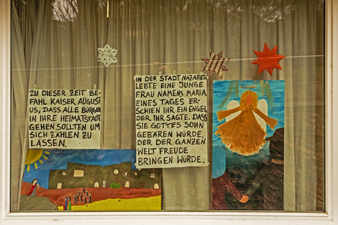 ZU DIESER ZEIT BE-
FAHL KAISER, AUGUST
US, DASS ALLE BÜRGER
IN IHRE HEIMATSTADT
GEHEN SOLLTEN UM
SICH ZÄHLEN ZU
LASSEN.
IN DER STADT NAZARETH
LEBTE EINE JUNGE
FRAU NAMENS MARIA.
EINES TAGES ER-
SCHIEN IHR EIN ENGEL
DER IHR SAGTE, DASS
SIE GOTTES SOHN
GEBÄREN WÜRDE,
DER DER GANZEN
WELT FREUDE
BRINGEN WÜRDE.